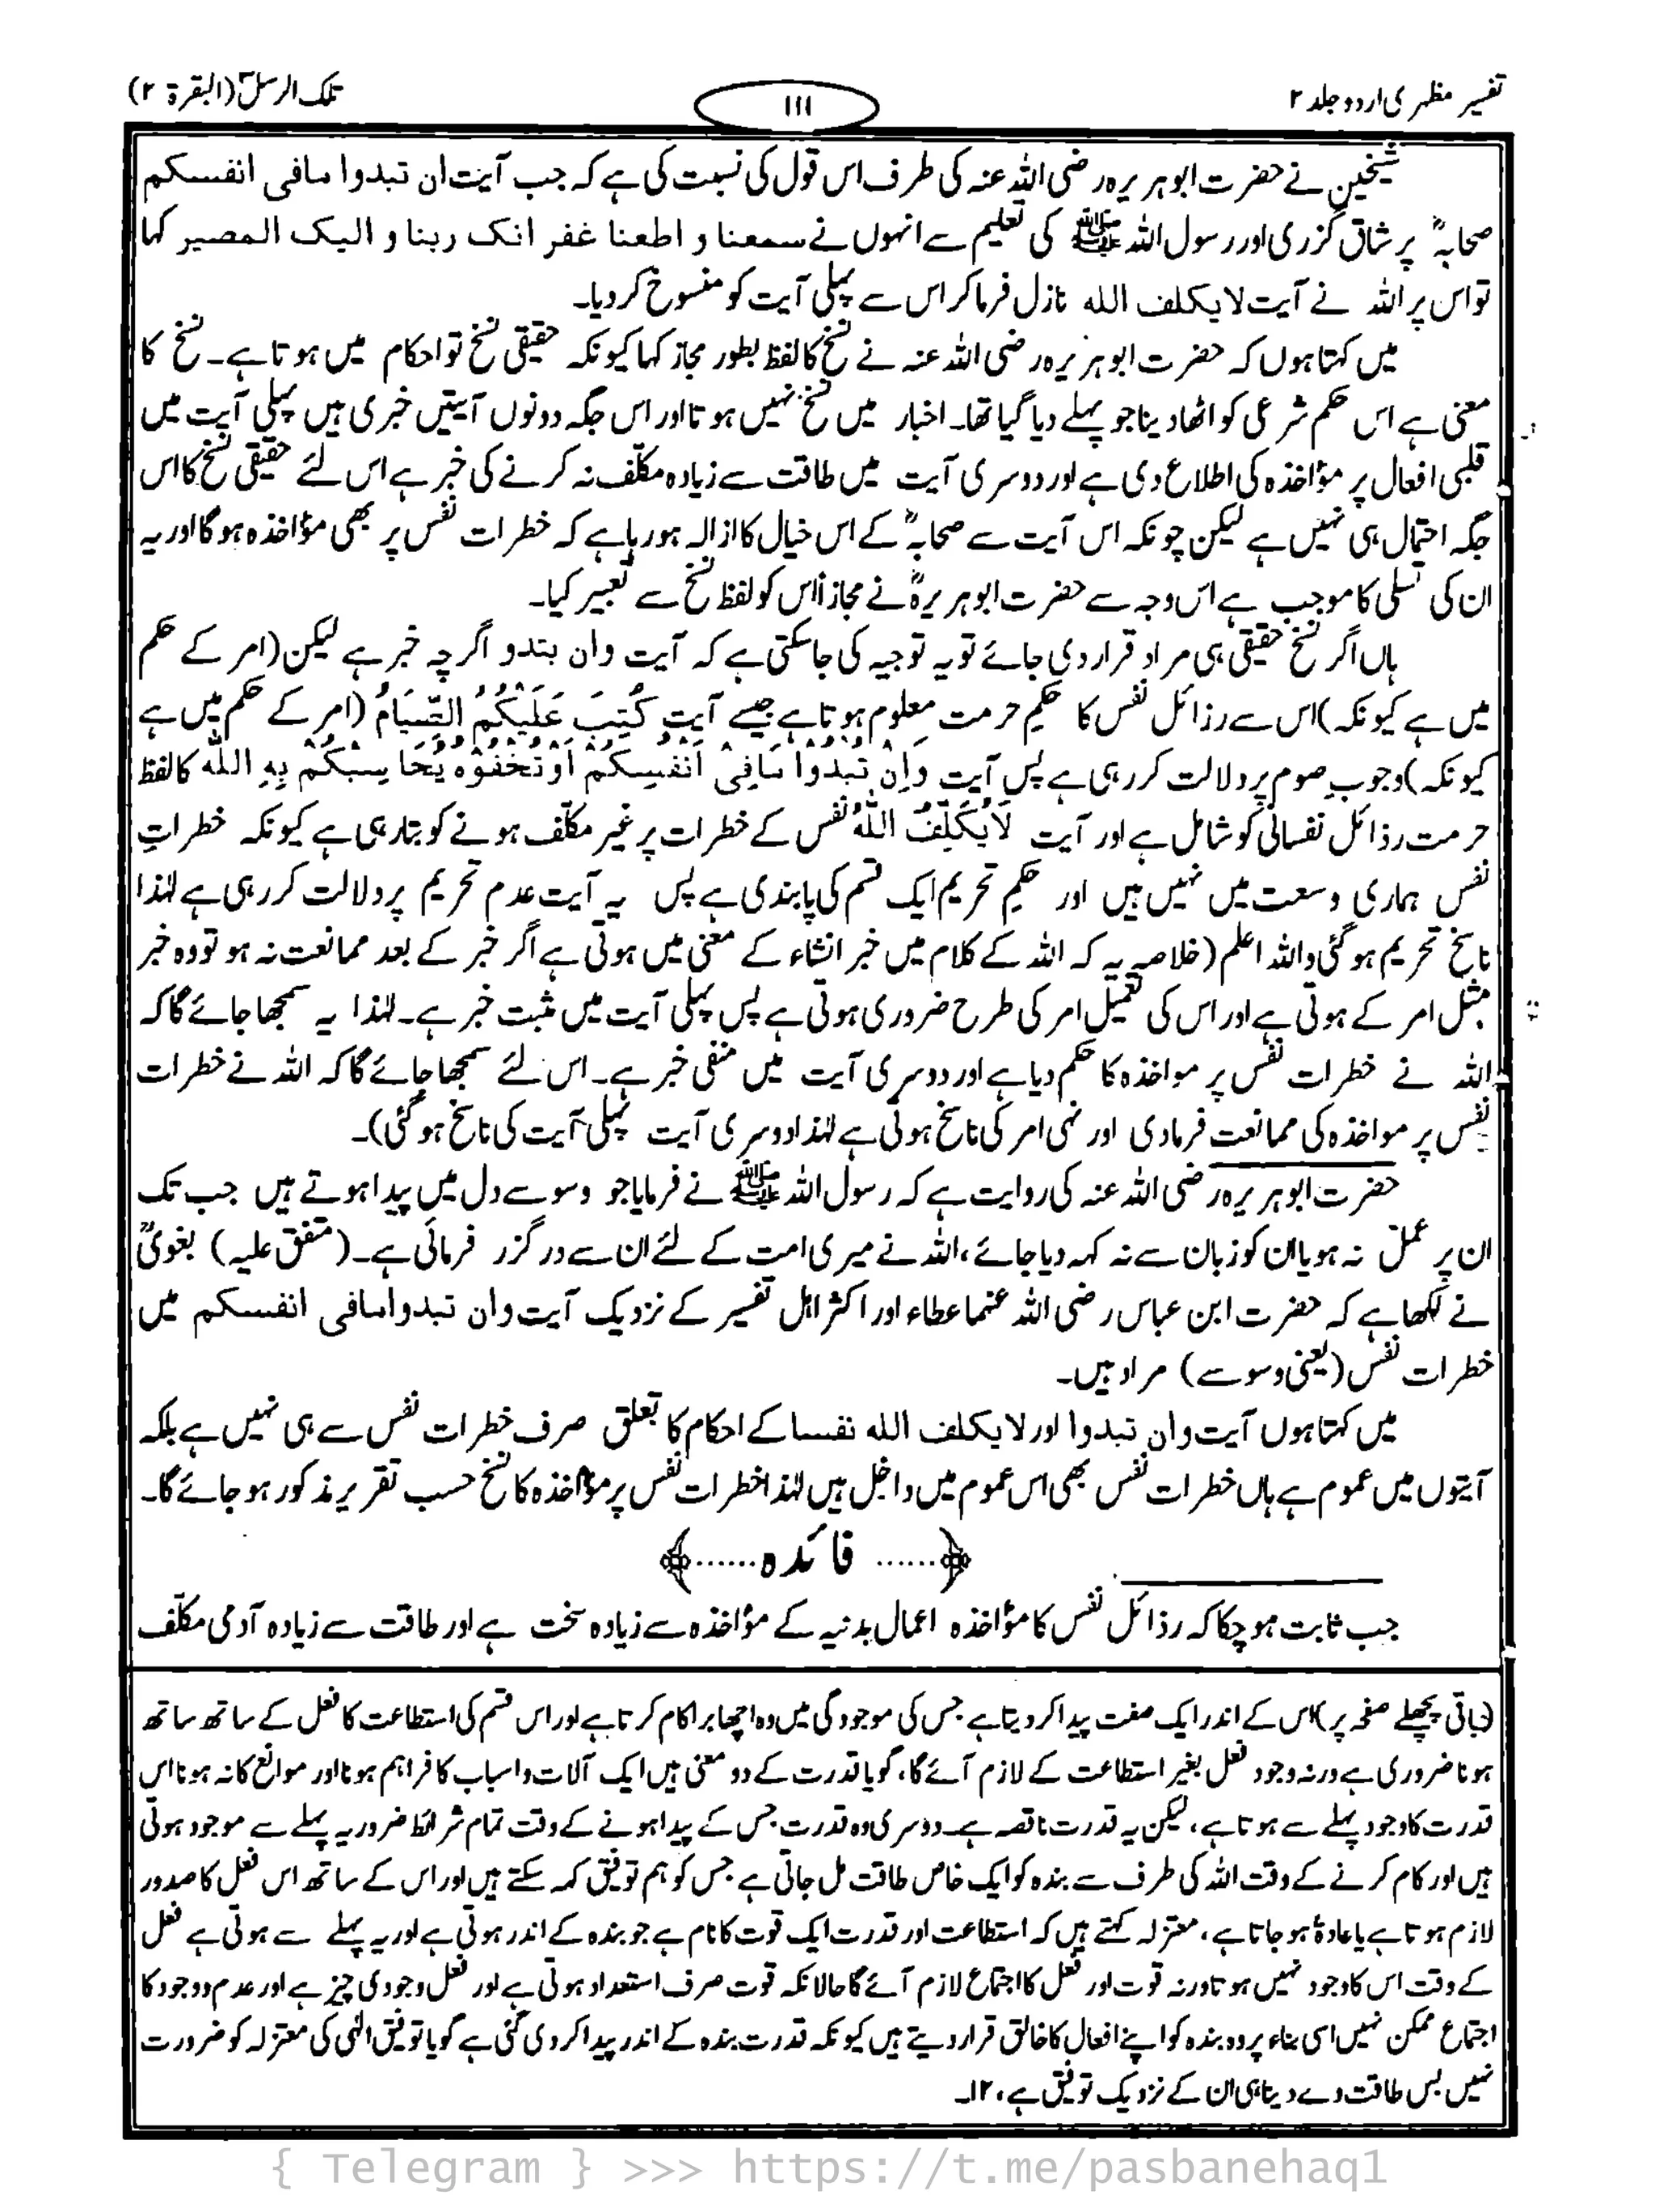 تفسیر مظہری اردو جلد ۲
۱۱۱
تلک الرسل ۳ (البقرۃ ۲)
شیخین نے حضرت ابوہریرہ رضی اللہ عنہ کی طرف اس قول کی نسبت کی ہے کہ جب آیت ان تبدوا مافی انفسکم
صحابہؓ پر شاق گزری اور رسول اللہ ﷺ کی تعلیم سے انہوں نے سمعنا و اطعنا غفر انک ربنا و الیک المصیر کہا
تو اس پر اللہ نے آیت لایکلف اللہ نازل فرما کر اس سے پہلی آیت کو منسوخ کر دیا۔
میں کہتا ہوں کہ حضرت ابوہریرہ رضی اللہ عنہ نے نسخ کا لفظ بطور مجاز کہا کیونکہ حقیقی نسخ تو احکام میں ہوتا ہے۔ نسخ کا
معنی ہے اس حکم شرعی کو اٹھا دینا جو پہلے دیا گیا تھا۔ اخبار میں نسخ نہیں ہوتا اور اس جگہ دونوں آیتیں خبری ہیں پہلی آیت میں
قلبی افعال پر مؤاخذہ کی اطلاع دی ہے اور دوسری آیت میں طاقت سے زیادہ مکلّف نہ کرنے کی خبر ہے اس لئے حقیقی نسخ کا اس
جگہ احتمال ہی نہیں ہے لیکن چونکہ اس آیت سے صحابہؓ کے اس خیال کا ازالہ ہو رہا ہے کہ خطرات نفس پر بھی مؤاخذہ ہوگا اور یہ
ان کی تسلی کا موجب ہے اس وجہ سے حضرت ابوہریرہؓ نے مجازاً اس کو لفظ نسخ سے تعبیر کیا۔
ہاں اگر نسخ حقیقی ہی مراد قرار دی جائے تو یہ توجیہ کی جاسکتی ہے کہ آیت وان تبدو اگرچہ خبر ہے لیکن (امر کے حکم
میں ہے کیونکہ) اس سے رذائل نفس کا حکم حرمت معلوم ہوتا ہے جیسے آیت کُتِبَ عَلَیْکُمُ الصِّیَامُ (امر کے حکم میں ہے
کیونکہ) وجوبِ صوم پر دلالت کر رہی ہے پس آیت وَاِنْ تُبْدُوْا مَافِیْ اَنْفُسِکُمْ اَوْتُخْفُوْہُ یُحَاسِبْکُمْ بِہِ اللّٰہ کا لفظ
حرمت رذائل نفسانی کو شامل ہے اور آیت لَایُکَلِّفُ اللّٰہُ نفس کے خطرات پر غیر مکلّف ہونے کو بتا رہی ہے کیونکہ خطراتِ
نفس ہماری وسعت میں نہیں ہیں اور حکم تحریم ایک قسم کی پابندی ہے پس یہ آیت عدم تحریم پر دلالت کر رہی ہے لہٰذا
ناسخ تحریم ہو گئی واللہ اعلم (خلاصہ یہ کہ اللہ کے کلام میں خبر انشاء کے معنی میں ہوتی ہے اگر خبر کے بعد ممانعت نہ ہو تو وہ خبر
مثل امر کے ہوتی ہے اور اس کی تعمیل امر کی طرح ضروری ہوتی ہے پس پہلی آیت میں مثبت خبر ہے۔ لہٰذا یہ سمجھا جائے گا کہ
اللہ نے خطرات نفس پر مواخذہ کا حکم دیا ہے اور دوسری آیت میں منفی خبر ہے۔ اس لئے سمجھا جائے گا کہ اللہ نے خطرات
نفس پر مواخذہ کی ممانعت فرمادی اور نہی امر کی ناسخ ہوتی ہے لہٰذا دوسری آیت پہلی آیت کی ناسخ ہو گئی)۔
حضرت ابوہریرہ رضی اللہ عنہ کی روایت ہے کہ رسول اللہ ﷺ نے فرمایا جو وسوسے دل میں پیدا ہوتے ہیں جب تک
ان پر عمل نہ ہو یا ان کو زبان سے نہ کہہ دیا جائے، اللہ نے میری امت کے لئے ان سے درگزر فرمائی ہے۔ (متفق علیہ) بغویؒ
نے لکھا ہے کہ حضرت ابن عباس رضی اللہ عنہما عطاء اور اکثر اہل تفسیر کے نزدیک آیت وان تبدوا مافی انفسکم میں
خطرات نفس (یعنی وسوسے) مراد ہیں۔
میں کہتا ہوں آیت وان تبدوا اور لایکلف اللہ نفسا کے احکام کا تعلق صرف خطرات نفس سے ہی نہیں ہے بلکہ
آیتوں میں عموم ہے ہاں خطرات نفس بھی اس عموم میں داخل ہیں لہٰذا خطرات نفس پر مؤاخذہ کا نسخ حسب تقریر مذکور ہو جائے گا۔
﴿...... فائدہ ......﴾
جب ثابت ہو چکا کہ رذائل نفس کا مؤاخذہ اعمال بدنیہ کے مؤاخذہ سے زیادہ سخت ہے اور طاقت سے زیادہ آدمی مکلّف
(باقی پچھلے صفحہ پر) اس کے اندر ایک صفت پیدا کر دیتا ہے جس کی موجودگی میں وہ اچھا برا کام کرتا ہے اور اس قسم کی استطاعت کا فعل کے ساتھ ساتھ
ہونا ضروری ہے ورنہ وجود فعل بغیر استطاعت کے لازم آئے گا، گویا قدرت کے دو معنی ہیں ایک آلات و اسباب کا فراہم ہونا اور موانع کا نہ ہونا اس
قدرت کا وجود پہلے سے ہوتا ہے، لیکن یہ قدرت ناقصہ ہے۔ دوسری وہ قدرت جس کے پیدا ہونے کے وقت تمام شرائط ضروریہ پہلے سے موجود ہوتی
ہیں اور کام کرنے کے وقت اللہ کی طرف سے بندہ کو ایک خاص طاقت مل جاتی ہے جس کو ہم توفیق کہہ سکتے ہیں اور اس کے ساتھ اس فعل کا صدور
لازم ہوتا ہے یا عادۃً ہو جاتا ہے، معتزلہ کہتے ہیں کہ استطاعت اور قدرت ایک قوت کا نام ہے جو بندہ کے اندر ہوتی ہے اور یہ پہلے سے ہوتی ہے فعل
کے وقت اس کا وجود نہیں ہوتا ورنہ قوت اور فعل کا اجتماع لازم آئے گا حالانکہ قوت صرف استعداد ہوتی ہے اور فعل وجودی چیز ہے اور عدم و وجود کا
اجتماع ممکن نہیں اسی بناء پر وہ بندہ کو اپنے افعال کا خالق قرار دیتے ہیں کیونکہ قدرت بندہ کے اندر پیدا کر دی گئی ہے گویا توفیق الٰہی کی معتزلہ کو ضرورت
نہیں بس طاقت دے دینا ہی ان کے نزدیک توفیق ہے، ۱۲۔
{ Telegram } >>> https://t.me/pasbanehaq1